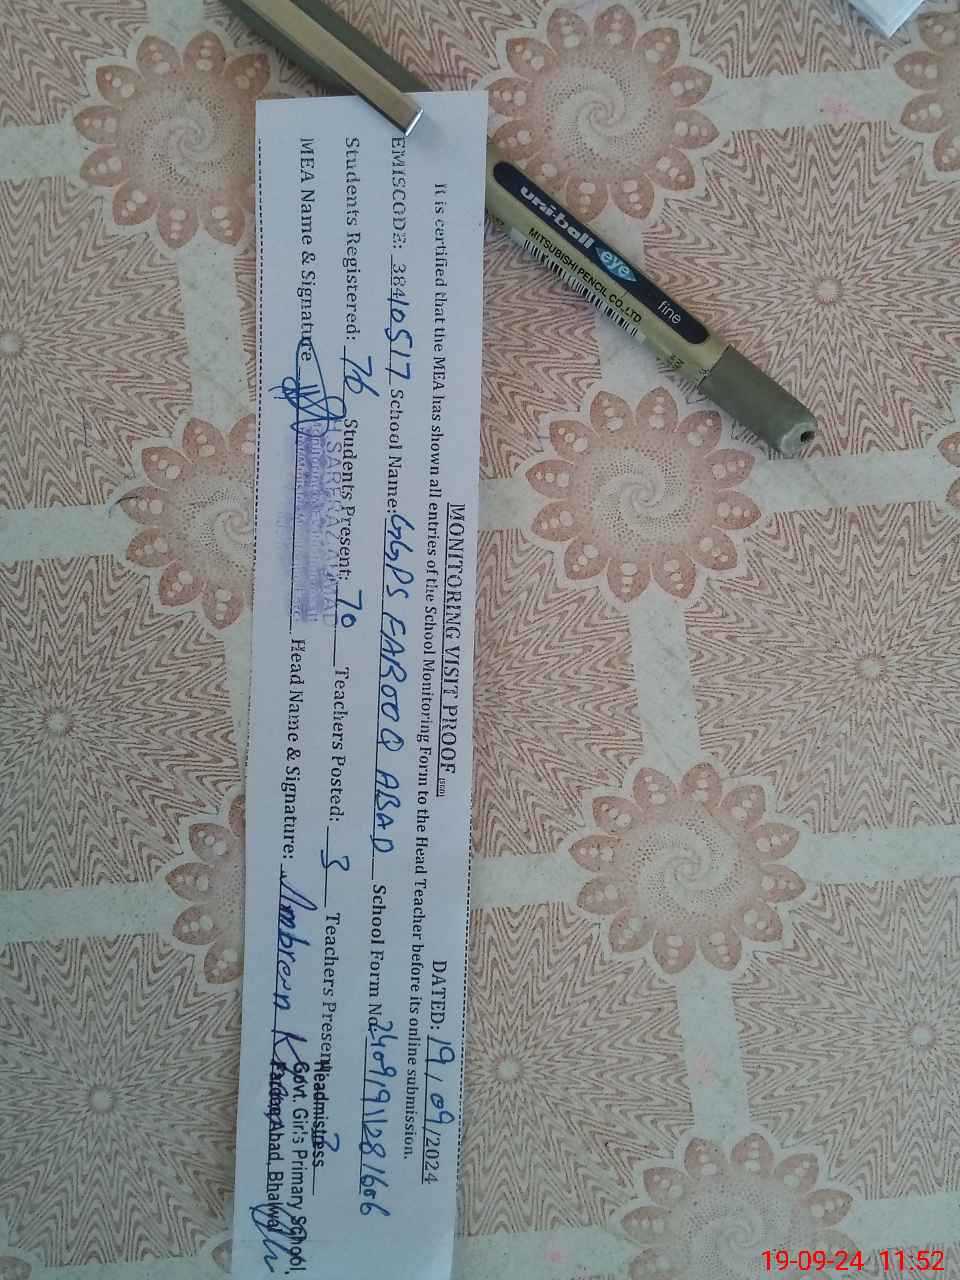 MONITORING VISIT PROOF (SGD) DATED: 19/09/2024
It is certified that the MEA has shown all entries of the School Monitoring Form to the Head Teacher before its online submission.
EMISCODE: 38410517 School Name: GGPS FAROOQ ABAD School Form No: 24091911281606
Students Registered: 76 Students Present: 70 Teachers Posted: 3 Teachers Present:
MEA Name & Signature Head Name & Signature: Ambreen
Headmistress
Govt. Girls Primary School,
Farooq Abad, Bhalwal
uni-ball eye fine
MITSUBISHI PENCIL CO.,LTD
19-09-24 11:52